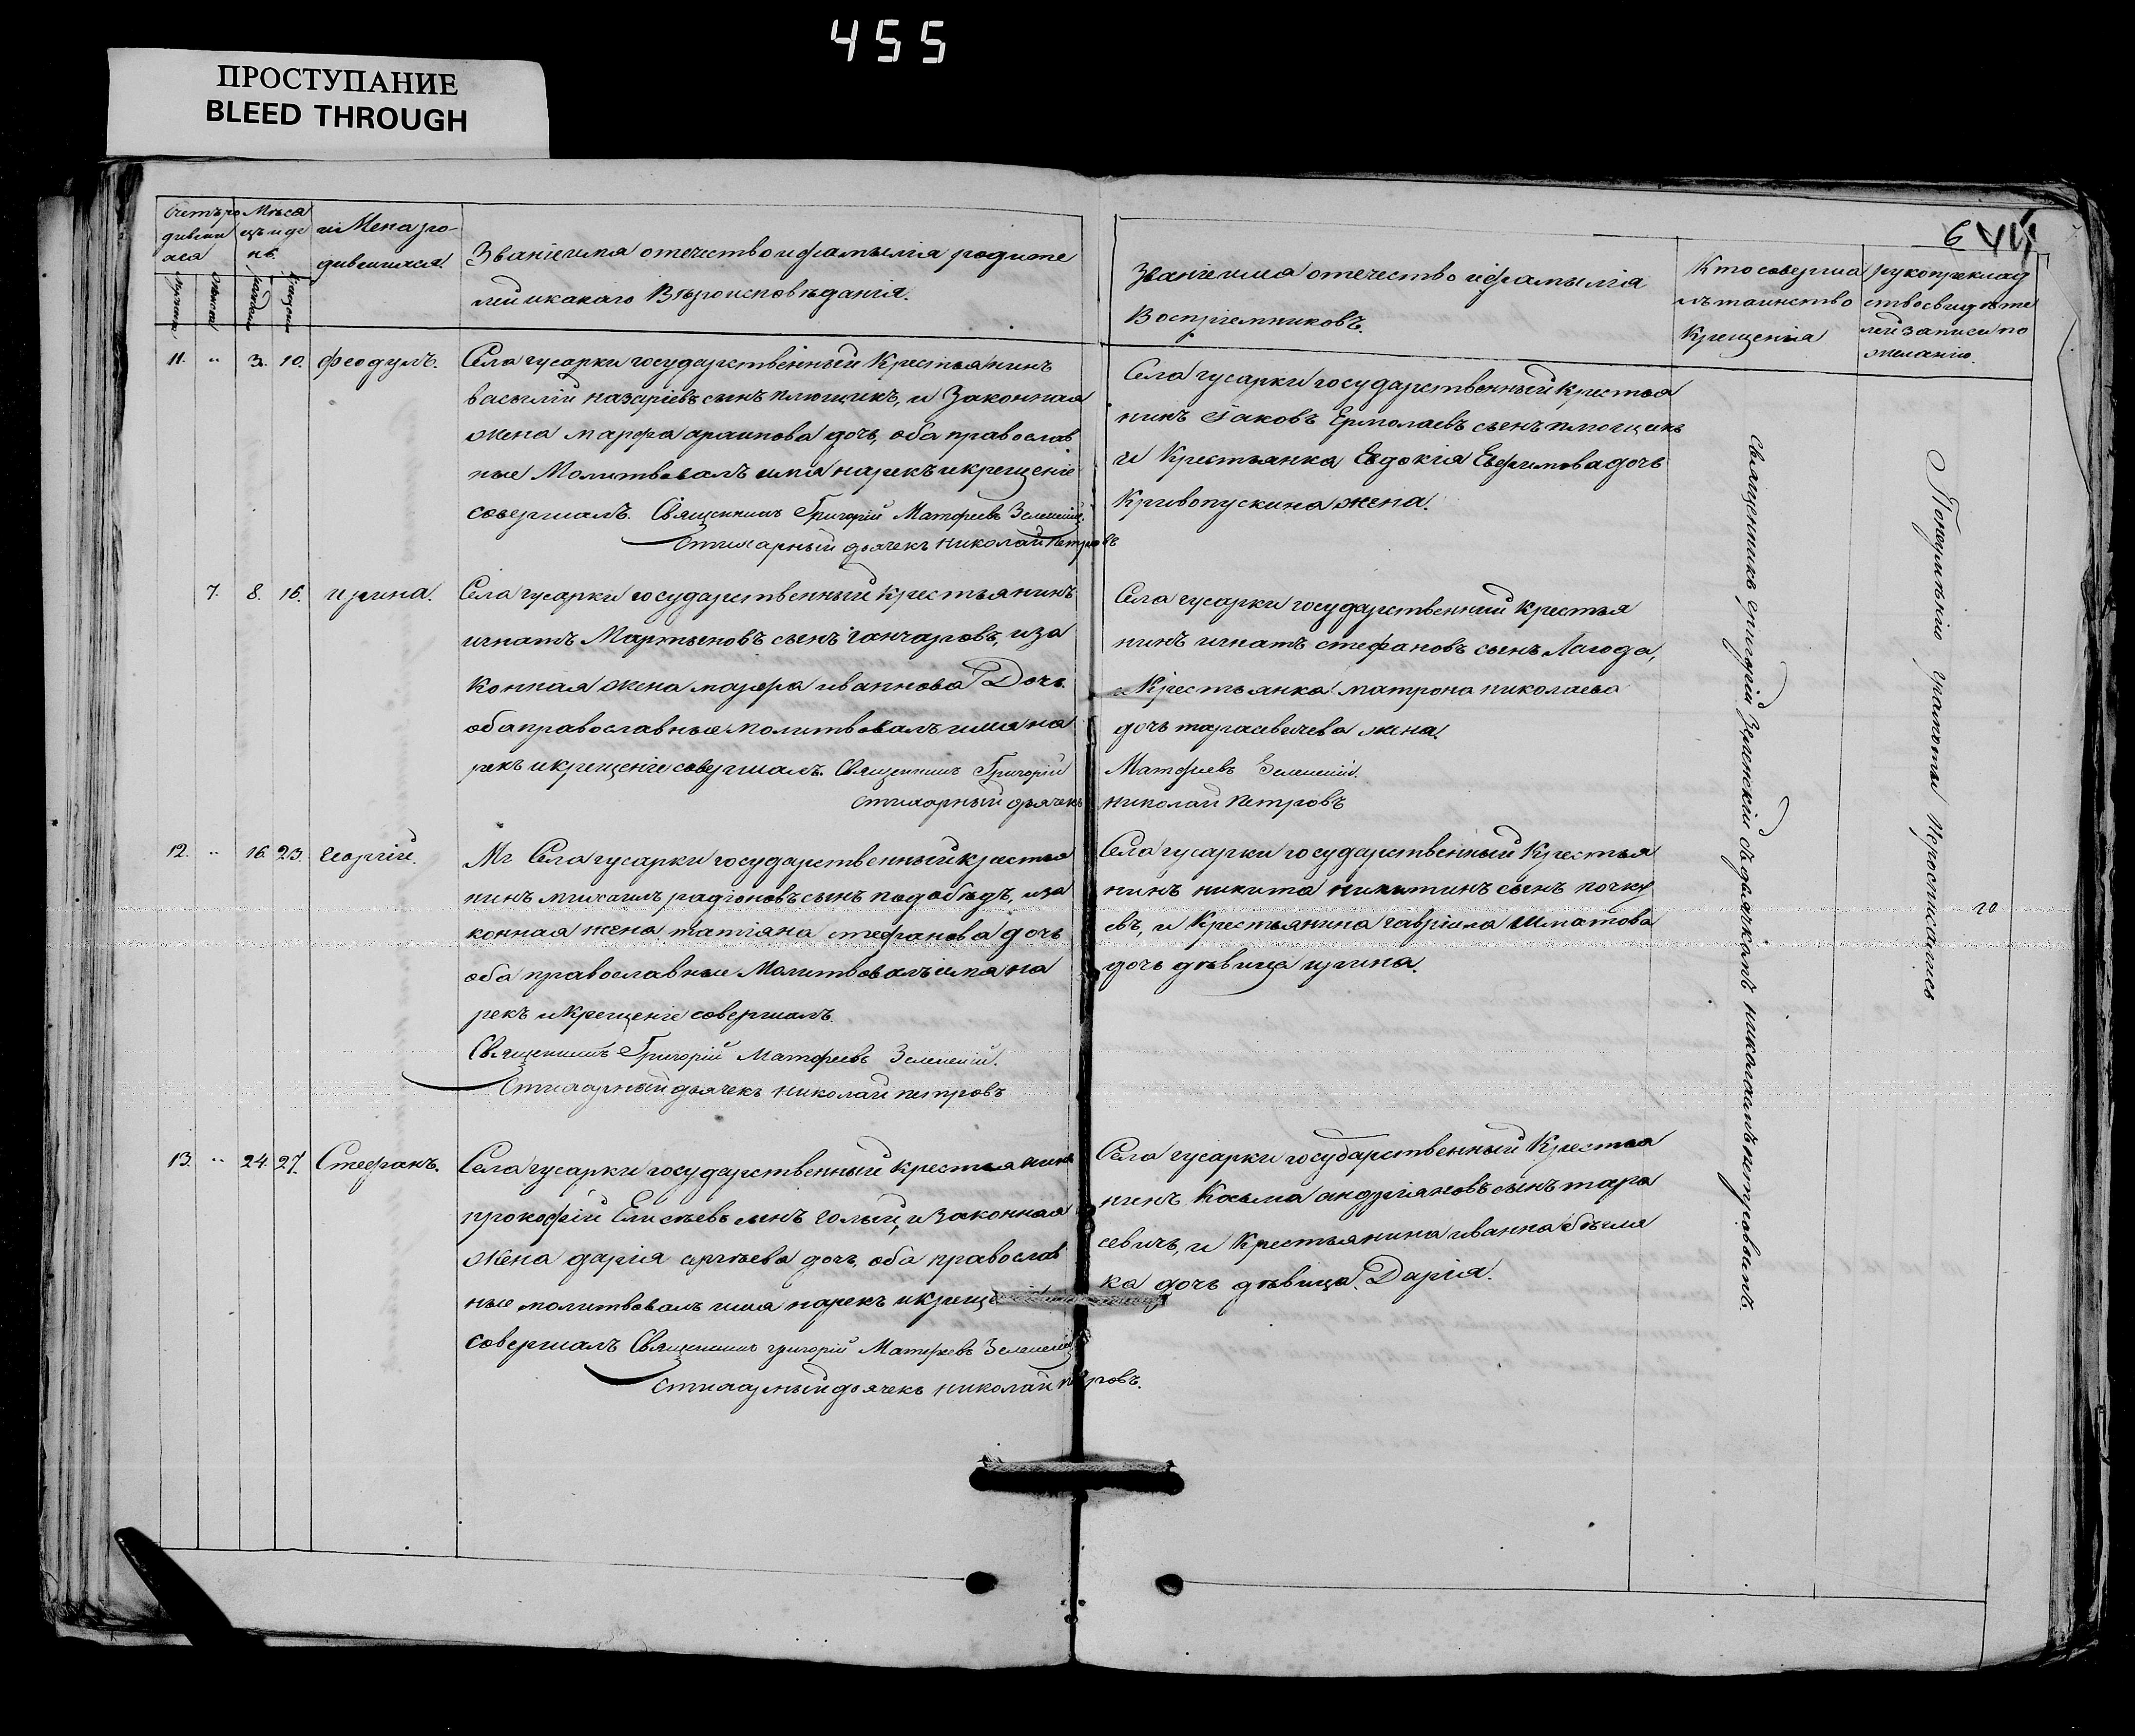 455
ПРОСТУПАНИЕ
BLEED THROUGH
6
Счетъ ро
дивши
хся
Мѣся
цъ и де
нь.
иМена ро-
дившихся.
Званіе имя отечество и фамылія родите
лей и какаго Вѣроисповѣданія.
Званіе имя отечество и фамылія
Воспріемниковъ.
Кто соверша
лъ таинство
Крещенія
рукоприклад
ство свидѣте
лей записи по
желанію.
11. " 3. 10. феодулъ.
Села гусарки государственный Крестьянинъ
василій назаріевъ сынъ плющикъ, и Законная
жена марфа архипова дочь, оба православ
ные Молитвовалъ имя нарекъ и крещеніе
совершалъ. Священникъ Григорій Матфеевъ Зеленскій.
Стихарный дьячекъ Николай Петровъ
Села гусарки государственный крестья
нинъ Іаковъ Ермолаевъ сынъ плющикъ
и Крестьянка Евдокія Евфимова дочь
Кривопускина жена.
7. 8. 16. ирина.
Села гусарки государственный Крестьянинъ
игнатъ Мартыновъ сынъ ганчаровъ, и за
Конная жена марфа иваннова Дочь.
оба православные молитвовалъ имя на
рекъ и крещеніе совершалъ. Священникъ Григорій
Стихарный дьячекъ
Села гусарки государственный крестья
нинъ игнатъ стефановъ сынъ Лагода,
и Крестьянка матрона николаева
дочь тарасевичева жена.
Матфеевъ Зеленскій.
николай Петровъ
12. " 16. 23. Георгій.
Села гусарки государственный крестья
нинъ михаилъ радіоновъ сынъ подобѣдъ, и за
конная жена татіяна стефанова дочь
оба православные Молитвовалъ имя на
рекъ и Крещеніе совершалъ.
Священникъ Григорій Матфеевъ Зеленскій.
Стихарный дьячекъ Николай петровъ
Села гусарки государственный Крестья
нинъ никита никитинъ сынъ почку
евъ, и Крестьянина гавріила Шматова
дочь дѣвица ирина.
13. " 24. 27. Стефанъ.
Села гусарки государственный крестьянинъ
прокофій Елисѣевъ сынъ голый, и Законная
Жена дарія сергѣева дочь, оба православ
ные молитвовалъ имя нарекъ и креще
совершалъ Священникъ григорій Матфеевъ Зеленскій
Стихарный дьячекъ николай петровъ.
Села гусарки государственный Крестья
нинъ Косьма андріяновъ сынъ тара
севичъ, и Крестьянина иванна бѣли
ка дочь дѣвица Дарія.
Священникъ григорій Зеленскій съ дьячкомъ николаемъ петровымъ.
грамоты
20